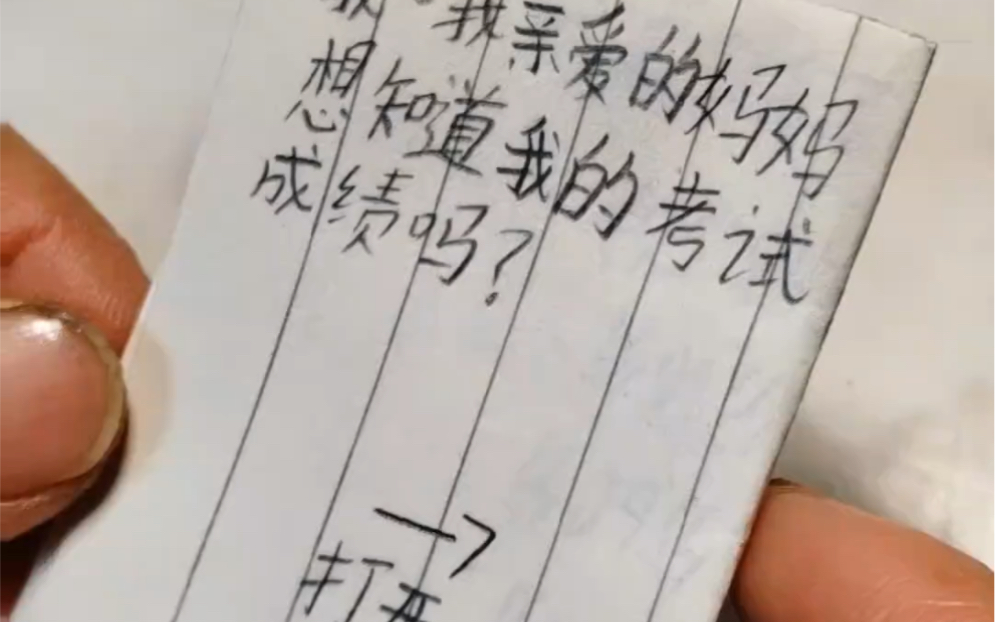 我亲爱的妈妈
想知道我的考试
成绩吗?
打开